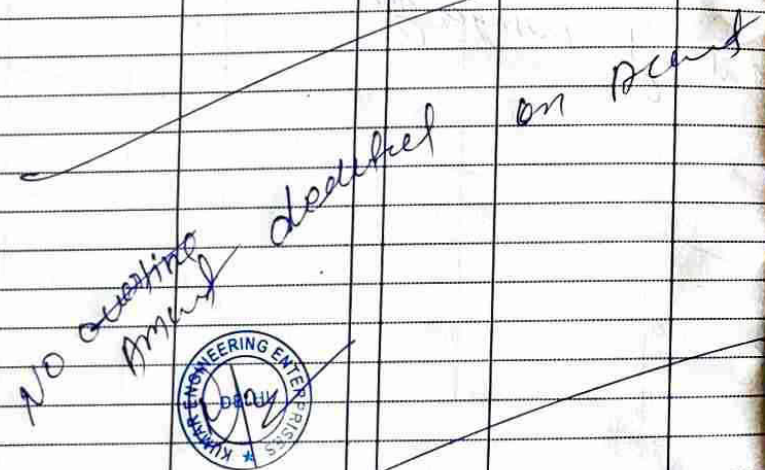 NO overtime
Amount deducted on Acount
KUMAR ENGINEERING ENTERPRISES